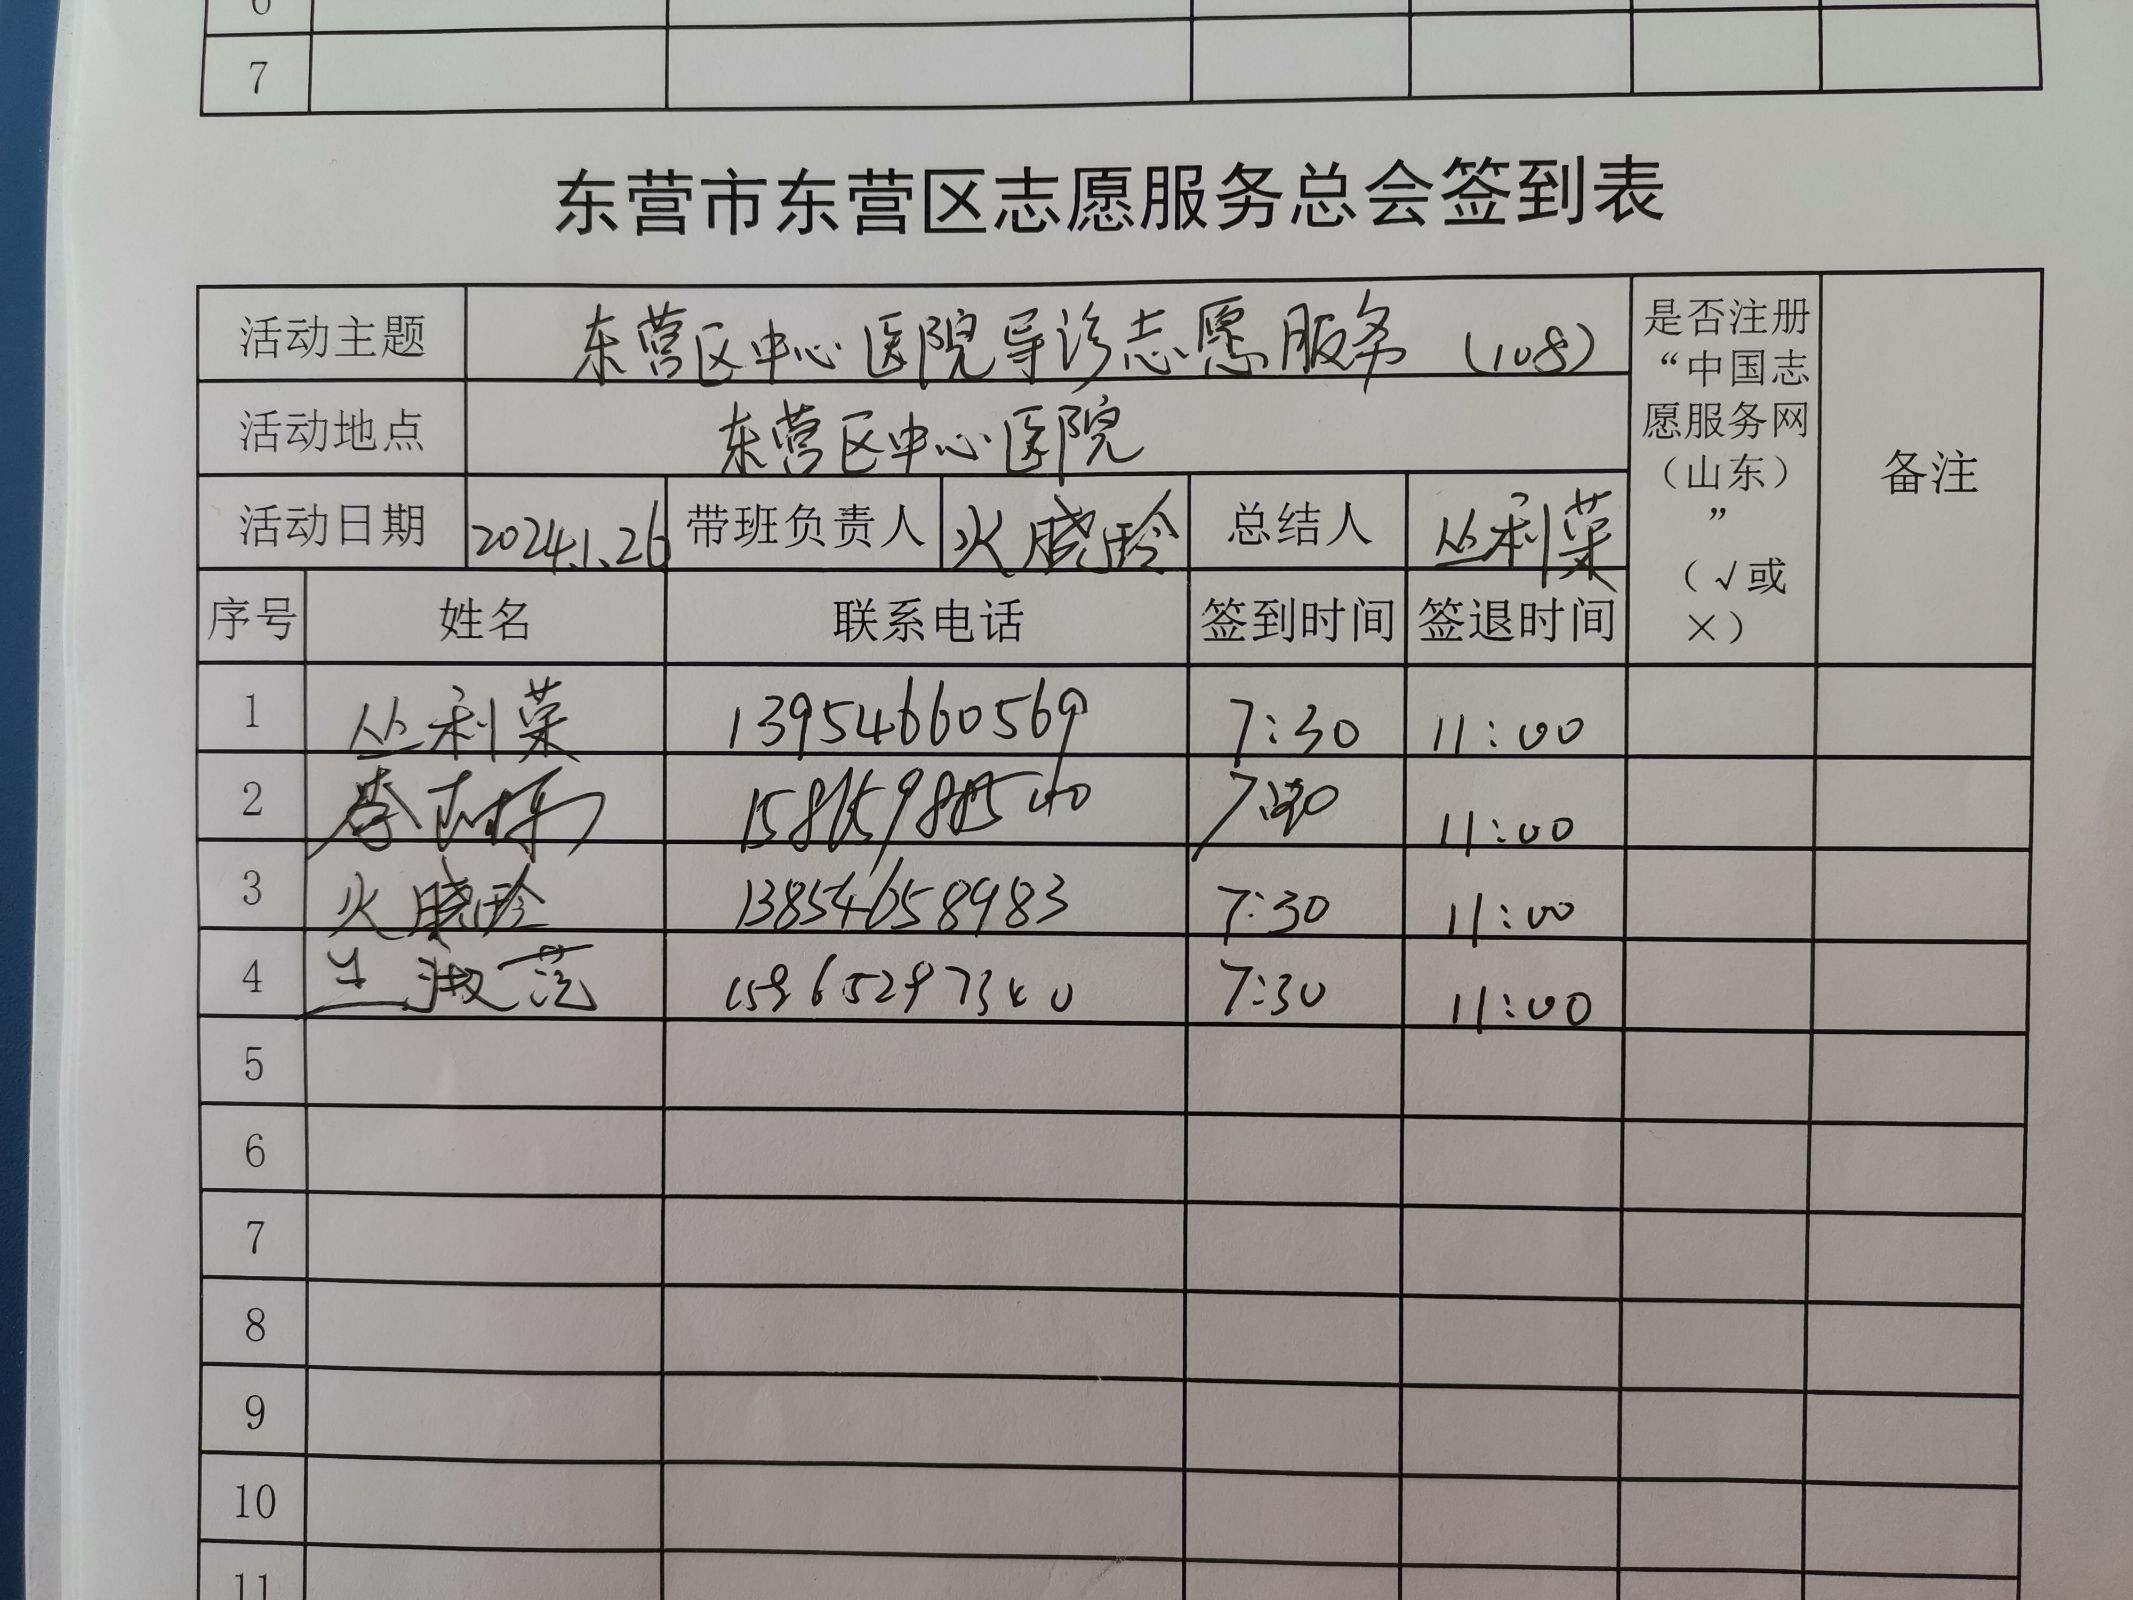 7
东营市东营区志愿服务总会签到表
活动主题 东营区中心医院导诊志愿服务 (108)
是否注册
“中国志
愿服务网
（山东）
”
（√或
×）
备注
活动地点 东营区中心医院
活动日期 2024.1.26 带班负责人 火晓玲 总结人 丛利荣
序号 姓名 联系电话 签到时间 签退时间
1 丛利荣 13954660569 7:30 11:00
2 11:00
3 火晓玲 13854658983 7:30 11:00
4 7:30 11:00
5
6
7
8
9
10
11